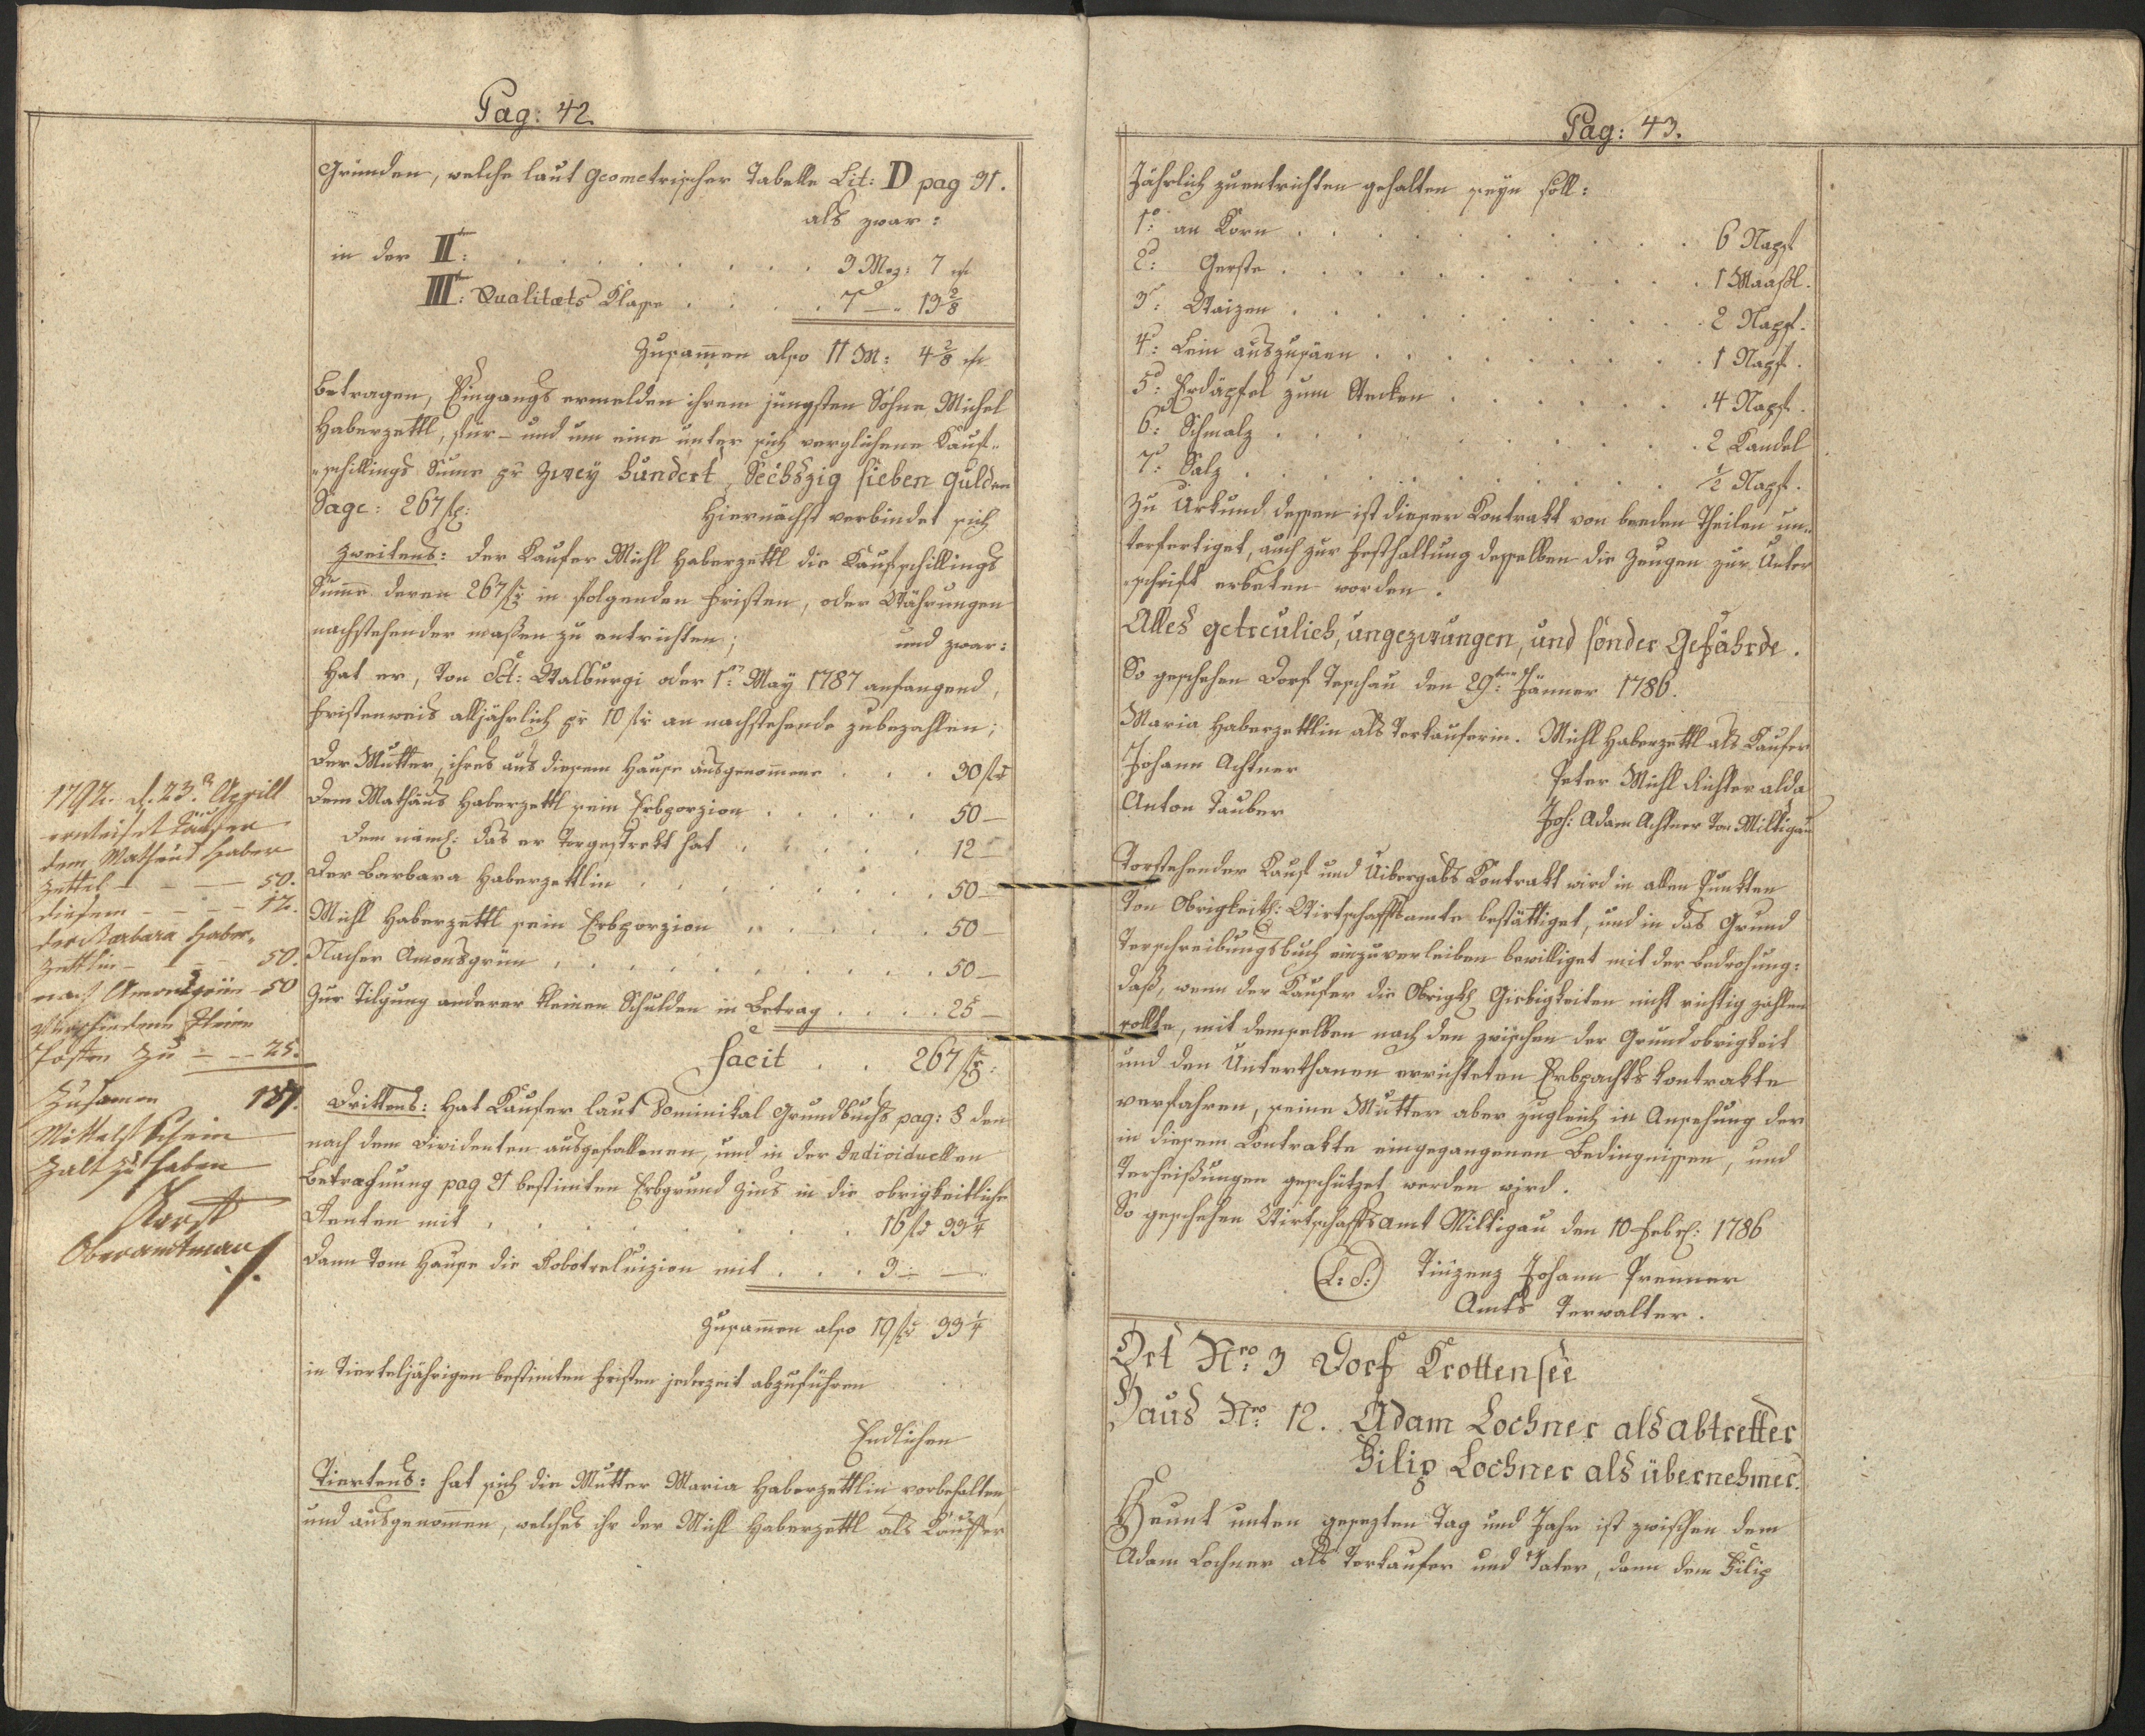 Pag: 42.
Gründen, welche laut geometrischer Tabelle Lit: D pag 31.
als zwar:
in der II: . . . . . . . . 3 Mez: 7
III: Qualitæts Klasse . . . . 7 — " 13 2/8
Zusam̄en also 11 M: 4 2/8
betragen, Eingangs ermelden ihrem jüngsten Sohne Michel
Haberzettl, für- und um eine unter sich verglichene Kauf-
schillings Sume pr zwey hundert, Sechszig sieben gulden
Sage: 267 f:
Hiernächst verbindet sich
Zweitens: der Kaufer Michl Haberzettl die Kaufschillings
Sūme deren 267 f in folgenden Fristen, oder Währungen
nachstehender maßen zu entrichten; und zwar:
Hat er, von Sct: Walburgi oder 1ten May 1787 anfangend,
fristenweis alljährlich pr 10 f an nachstehende zubezahlen;
der Mutter, ihres aus diesem Hause ausgenommene . . . 30 f
dem Mathäus Haberzettl sein Erbporzion . . . . . 50 —
dem näml: das er vorgestrekt hat . . . . . 12 —
der Barbara Haberzettlin . . . . . . . . 50 —
Michl Haberzettl sein Erbporzion . . . . . . 50 —
Nacher Amonsgrün . . . . . . . . . . 50 —
Zur Tilgung anderer kleinen Schulden in Betrag . . . . 25 —
facit . . 267 f:
Drittens: Hat Kaufer laut Dominikal Grundbuchs pag: 8 den
nach dem Dividenten ausgefallenen, und in der Individuellen
Betrachnung pag 21 bestimten Erbgrund Zins in die obrigkeitliche
Renten mit . . . . . . . . . 16 f 33 1/4
dann vom Hause die Robotreluizion mit . . . 3 — —
Zusam̄en also 19 f 33 1/4
in vierteljährigen bestimten Fristen jederzeit abzuführen
Endlichen
Viertens: hat sich die Mutter Maria Haberzettlin vorbehalten,
und ausgenom̄en, welches ihr der Michl Haberzettl als Kauffer
1792. d. 23. Aprill
erweiset Käufer
dem Mathäus Haber
zettel — — 50.
diesem — — — 12.
der Barbara Haber-
zettlin — — 50.
nach Amonsgrün — 50
verschiedene kleine
Posten zu — — 25.
Zusamen 187.
Mittelst Schein
zalt zu haben
Oberamtman
Pag: 43.
Jährlich zuentrichten gehalten seyn soll:
1o: an Korn . . . . . . . . . . 6 Napf
2o: Gerste . . . . . . . . . . 1 Maaßl.
3o: Waizen . . . . . . . . . . 2 Napf.
4o: Lein auszusäen . . . . . . . . 1 Napf.
5o: Erdäpfel zum Stecken . . . . . . . 4 Napf.
6o: Schmalz . . . . . . . . . . 2 Kandel
7o: Salz . . . . . . . . . . 1/2 Napf.
Zu Urkund dessen ist dieser Kontrakt von beeden Theilen un-
terfertiget, auch zur Festhaltung desselben die Zeugen zur Unter
schrift erbeten worden.
Alles getreulich, ungezwungen, und sonder Gefährde.
So geschehen Dorf Teschau den 29ten Jänner 1786.
Maria Haberzettlin als Verkauferin. Michl Haberzettl als Kaufer
Johann Achtner
Peter Michl Richter alda
Anton Tauber
Joh: Adam Achtner von Miltigau
Vorstehender Kauf und Uibergabs Kontrakt wird in allen Punkten
von Obrigkeitl: Wirtschaftsamte bestättiget, und in das Grund
Verschreibungsbuch einzuverleiben bewilliget mit der Bedrohung:
daß, wenn der Kaufer die Obrigkl Giebigkeiten nicht richtig zahlen
sollte, mit demselben nach den zwischen der Grundobrigkeit
und den Unterthanen errichteten Erbpachts Kontrakte
verfahren, seine Mutter aber zugleich in Ansehung der
in diesem Kontrakte eingegangenen Bedingnissen, und
Verheißungen geschützet werden wird.
So geschehen Wirtschaftsamt Miltigau den 10 Febr: 1786
(L:S:) Vinzenz Johann Prenner
Amts Verwalter.
Ort Nro: 3 Dorf Krottensee
Haus Nro: 12. Adam Lochner als abtretter
Filip Lochner als übernehmer.
Heunt unten gesezten Tag und Jahr ist zwischen dem
Adam Lochner als Verkaufer und Vater, dann dem Filip